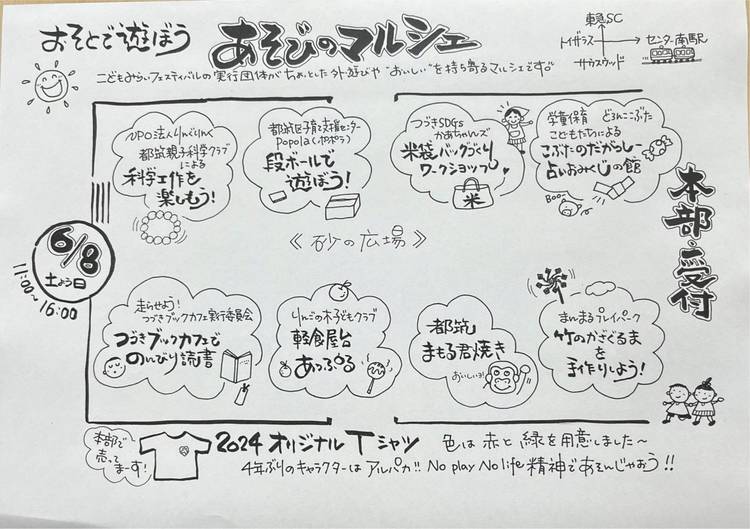 おそとで遊ぼう
あそびのマルシェ
こどもみらいフェスティバルの実行団体がちょっとした外遊びや"おいしい"を持ち寄るマルシェです。
東急SC
トイザラス
センター南駅
サウスウッド
NPO法人りんぐりんく
都筑親子科学クラブ
による
科学工作を
楽しもう!
都筑区子育て支援センター
Popola(ポポラ)
段ボールで
遊ぼう!
つづきSDGs
かあちゃんズ
米袋バッグづくり
ワークショップ
米
学童保育 どろんここぶた
こどもたちによる
こぶたのだがっしー
占いおみくじの館
Boo
本部・受付
6/8
土よう日
11:00~16:00
《砂の広場》
走らせよう!
つづきブックカフェ実行委員会
つづきブックカフェで
のんびり読書
りんごの木子どもクラブ
軽食屋台
あっぷる
都筑
まもる君焼き
おいしいヨ!
まんまるプレイパーク
竹のかざぐるま
を
手作りしよう!
本部で
売って
まーす!
2024 オリジナル Tシャツ 色は赤と緑を用意しました~
4年ぶりのキャラクターは アルパカ!! No play No life 精神であそんじゃおう!!